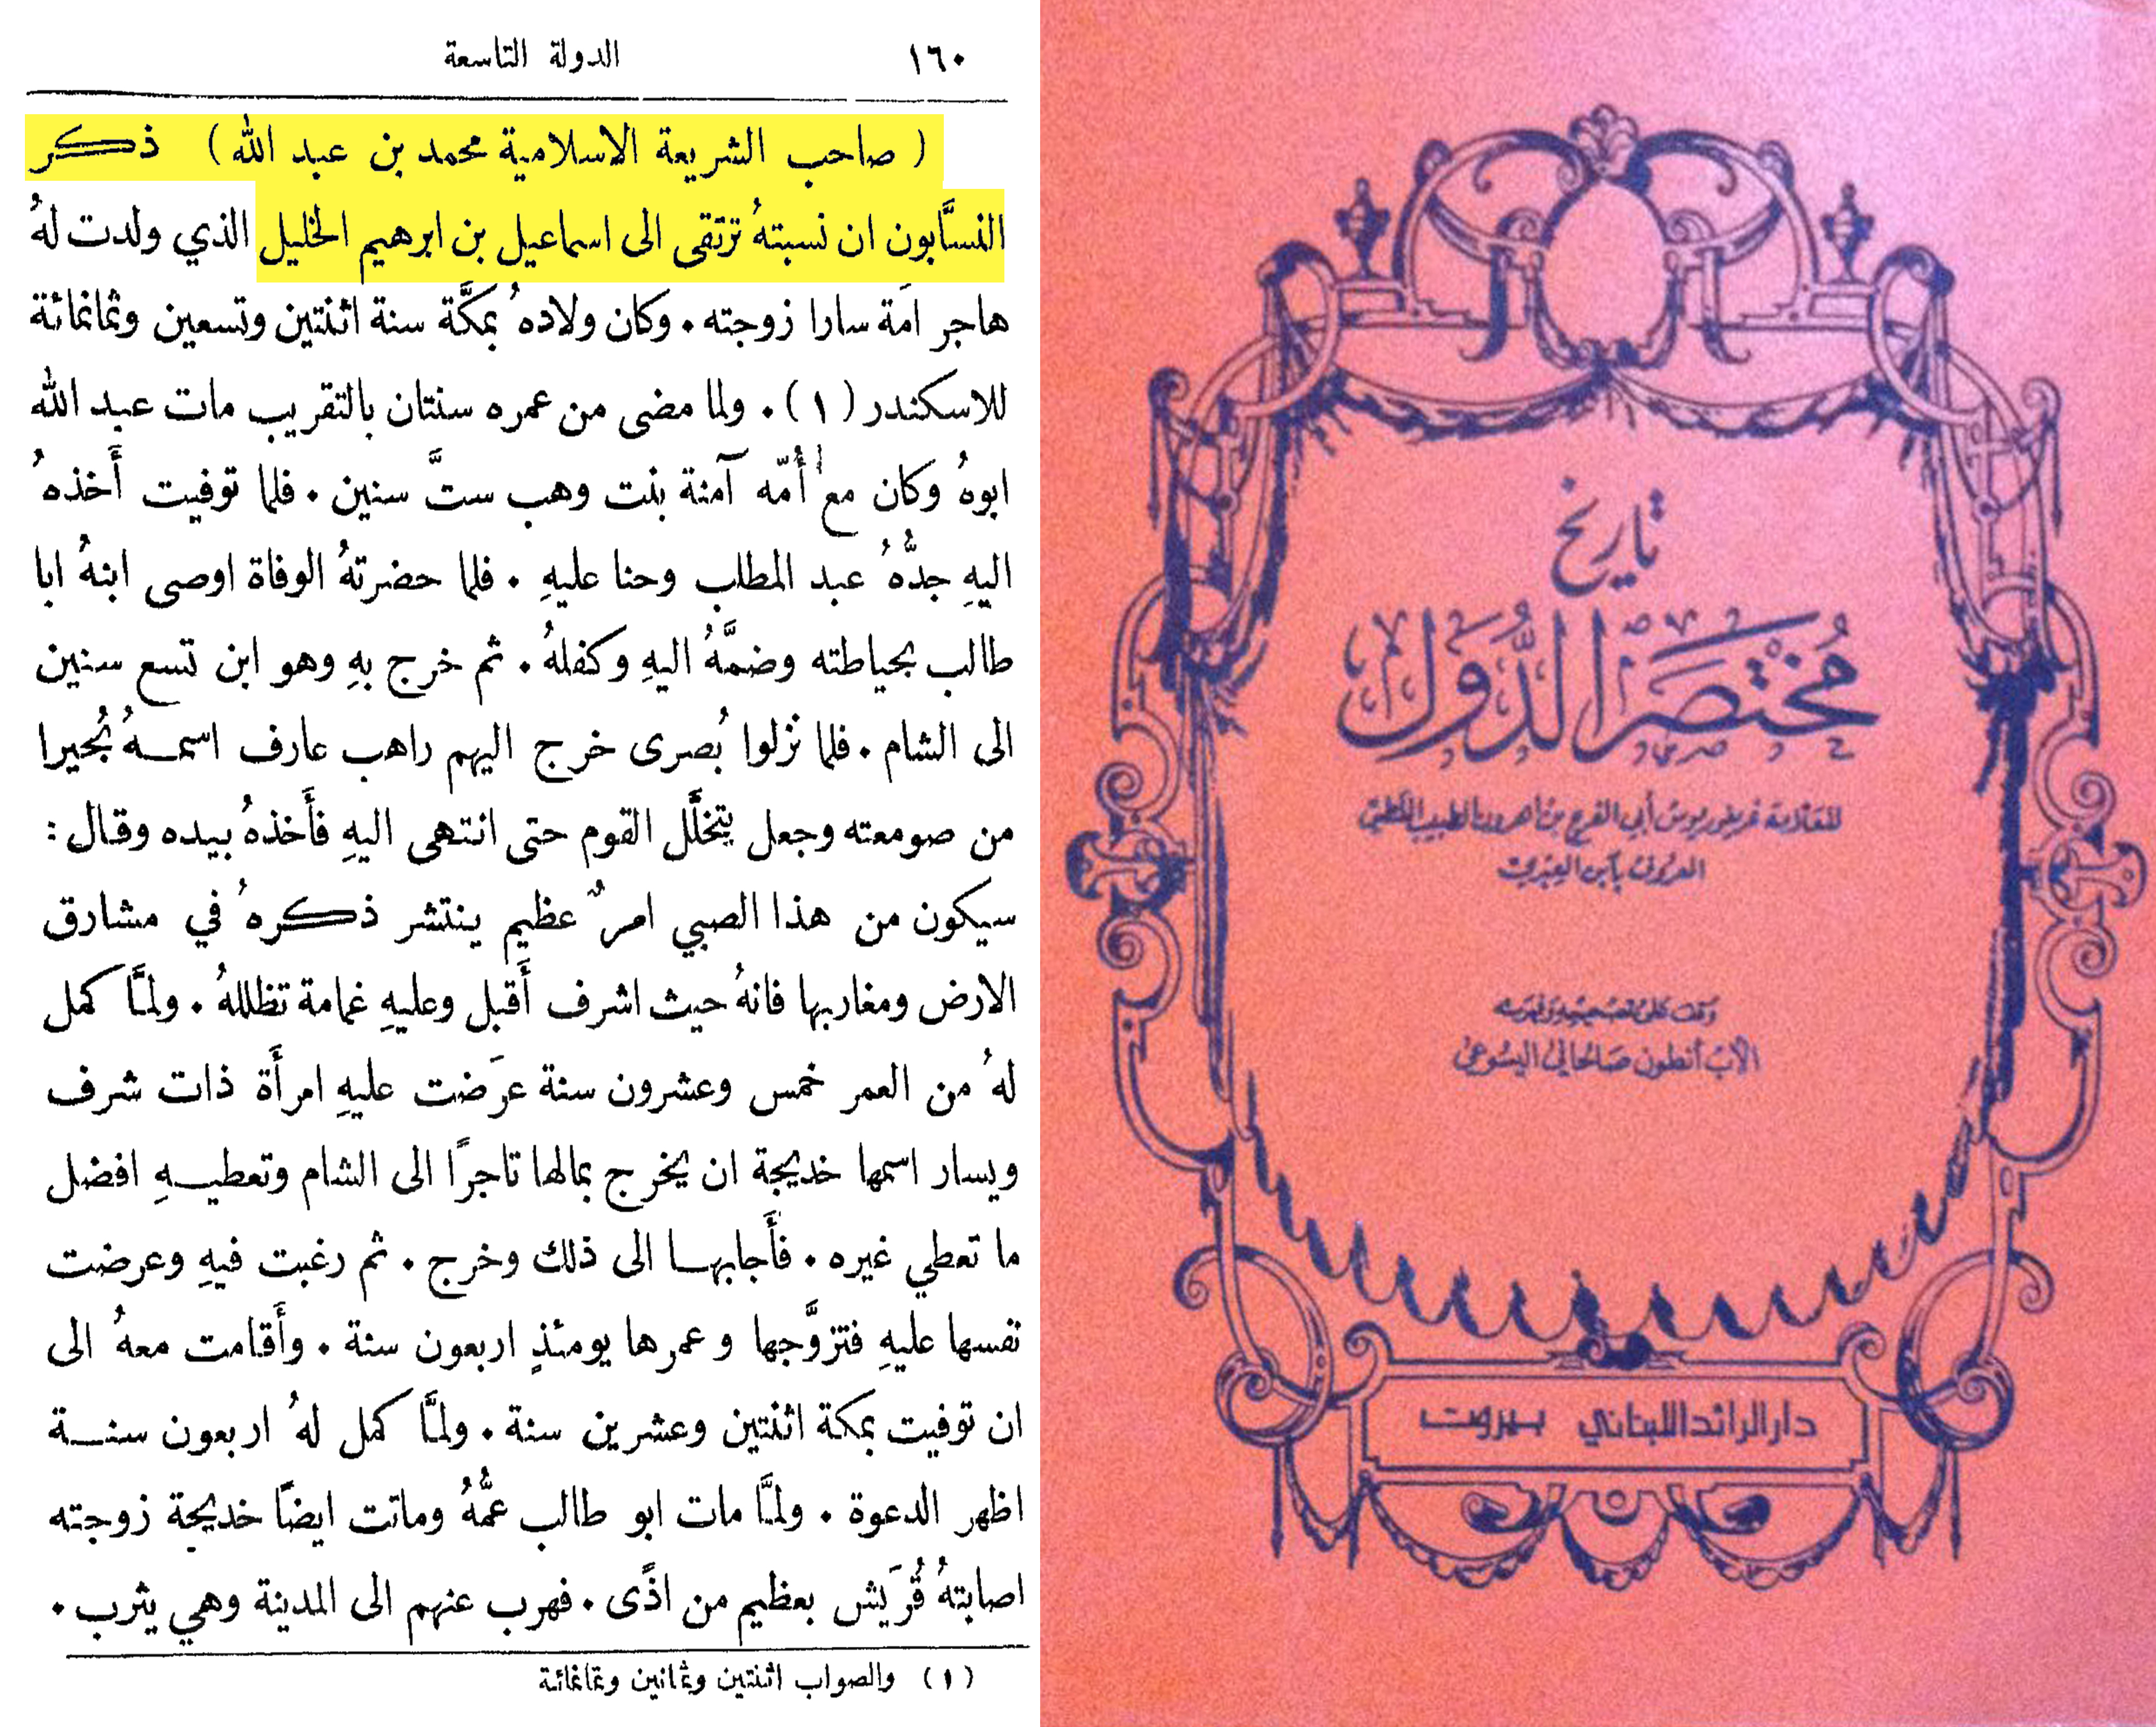 ١٦٠
الدولة التاسعة
( صاحب الشريعة الاسلامية محمد بن عبد الله ) ذكر
النسَّابون ان نسبتهُ ترتقى الى اسماعيل بن ابرهيم الخليل الذي ولدت لهُ
هاجر اَمَة سارا زوجته ٠ وكان ولادهُ بمكَّة سنة اثنتين وتسعين وثمانمائة
للاسكندر (١) ٠ ولما مضى من عمره سنتان بالتقريب مات عبد الله
ابوهُ وكان مع أُمّه آمنة بنت وهب ستَّ سنين ٠ فلما توفيت أَخذهُ
اليهِ جدُّهُ عبد المطلب وحنا عليهِ ٠ فلما حضرتهُ الوفاة اوصى ابنهُ ابا
طالب بحياطته وضمَّهُ اليهِ وكفلهُ ٠ ثم خرج بهِ وهو ابن تسع سنين
الى الشام ٠ فلما نزلوا بُصرى خرج اليهم راهب عارف اسمهُ بُحيرا
من صومعته وجعل يتخلَّل القوم حتى انتهى اليهِ فأَخذهُ بيده وقال :
سيكون من هذا الصبي امرٌ عظيم ينتشر ذكرهُ في مشارق
الارض ومغاربها فانهُ حيث اشرف أَقبل وعليهِ غمامة تظللهُ ٠ ولمَّا كمل
لهُ من العمر خمس وعشرون سنة عرَضت عليهِ امرأَة ذات شرف
ويسار اسمها خديجة ان يخرج بمالها تاجرًا الى الشام وتعطيهِ افضل
ما تعطي غيره ٠ فأَجابها الى ذلك وخرج ٠ ثم رغبت فيهِ وعرضت
نفسها عليهِ فتزوَّجها وعمرها يومئذٍ اربعون سنة ٠ وأَقامت معهُ الى
ان توفيت بمكة اثنتين وعشرين سنة ٠ ولمَّا كمل لهُ اربعون سنة
اظهر الدعوة ٠ ولمَّا مات ابو طالب عمُّهُ وماتت ايضًا خديجة زوجته
اصابتهُ قُرَيش بعظيم من اذًى ٠ فهرب عنهم الى المدينة وهي يثرب ٠
(١) والصواب اثنتين وثمانين وثمانمائة
تاريخ
مُختصر الدُّول
للعلامة غريغوريوس أبي الفرج بن اهرون الطبيب الملطي
المعروف بابن العبري
وقف على تصحيحه وفهرسته
الأب أنطون صالحاني اليسوعي
دار الرائد اللبناني بيروت